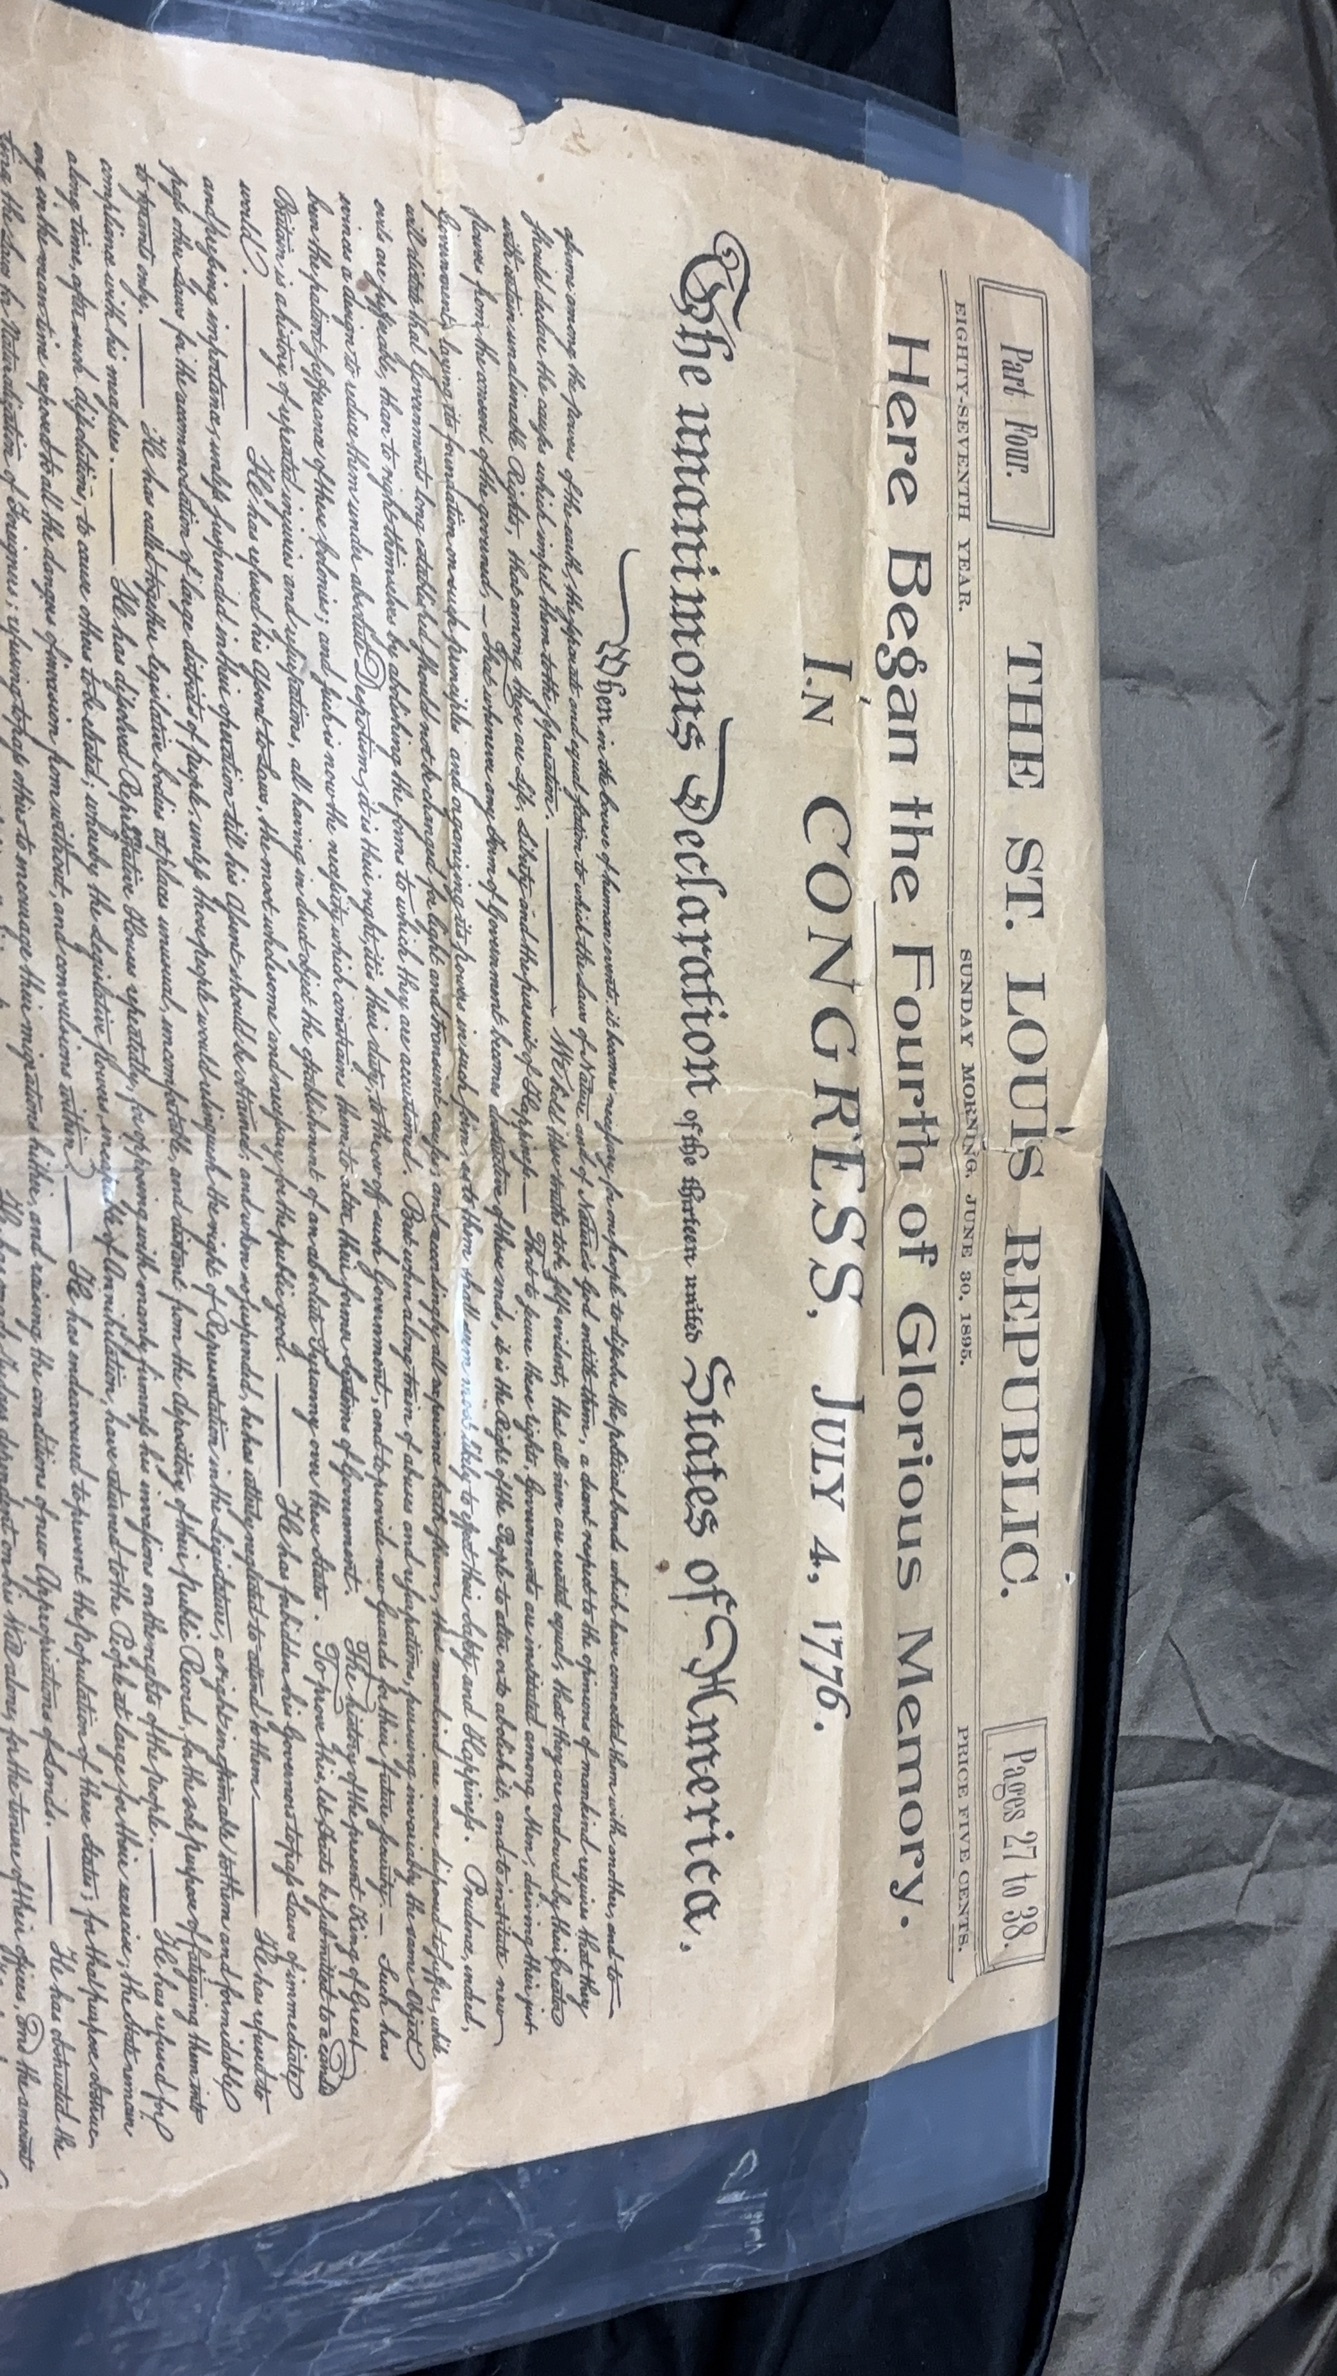 Part Four.
THE ST. LOUIS REPUBLIC.
Pages 27 to 38.
EIGHTY-SEVENTH YEAR.
SUNDAY MORNING, JUNE 30, 1895.
PRICE FIVE CENTS.
Here Began the Fourth of Glorious Memory.
IN CONGRESS, JULY 4, 1776.
The unanimous Declaration of the thirteen united States of America.
When in the Course of human events, it becomes necessary for one people to dissolve the political bands which have connected them with another, and to
assume among the powers of the earth, the separate and equal station to which the Laws of Nature and of Nature's God entitle them, a decent respect to the opinions of mankind requires that they
should declare the causes which impel them to the separation. We hold these truths to be self-evident, that all men are created equal, that they are endowed by their Creator
with certain unalienable Rights, that among these are Life, Liberty and the pursuit of Happiness. — That to secure these rights, Governments are instituted among Men, deriving their just
powers from the consent of the governed, — That whenever any Form of Government becomes destructive of these ends, it is the Right of the People to alter or to abolish it, and to institute new
Government, laying its foundation on such principles and organizing its powers in such form, as to them shall seem most likely to effect their Safety and Happiness. Prudence, indeed,
will dictate that Governments long established should not be changed for light and transient causes; and accordingly all experience hath shewn, that mankind are more disposed to suffer, while
evils are sufferable, than to right themselves by abolishing the forms to which they are accustomed. But when a long train of abuses and usurpations, pursuing invariably the same Object
evinces a design to reduce them under absolute Despotism, it is their right, it is their duty, to throw off such Government, and to provide new Guards for their future security. — Such has
been the patient sufferance of these Colonies; and such is now the necessity which constrains them to alter their former Systems of Government. The history of the present King of Great
Britain is a history of repeated injuries and usurpations, all having in direct object the establishment of an absolute Tyranny over these States. To prove this, let Facts be submitted to a candid
world. He has refused his Assent to Laws, the most wholesome and necessary for the public good. He has forbidden his Governors to pass Laws of immediate
and pressing importance, unless suspended in their operation till his Assent should be obtained; and when so suspended, he has utterly neglected to attend to them. He has refused to
pass other Laws for the accommodation of large districts of people, unless those people would relinquish the right of Representation in the Legislature, a right inestimable to them and formidable
to tyrants only. He has called together legislative bodies at places unusual, uncomfortable, and distant from the depository of their public Records, for the sole purpose of fatiguing them into
compliance with his measures. He has dissolved Representative Houses repeatedly, for opposing with manly firmness his invasions on the rights of the people. He has refused for
a long time, after such dissolutions, to cause others to be elected; whereby the Legislative powers, incapable of Annihilation, have returned to the People at large for their exercise; the State remain-
ing in the mean time exposed to all the dangers of invasion from without, and convulsions within. He has endeavoured to prevent the population of these States; for that purpose obstruc-
ting the Laws for Naturalization of Foreigners; refusing to pass others to encourage their migrations hither, and raising the conditions of new Appropriations of Lands. He has obstructed the
He has made Judges dependent on his Will alone, for the tenure of their offices, and the amount